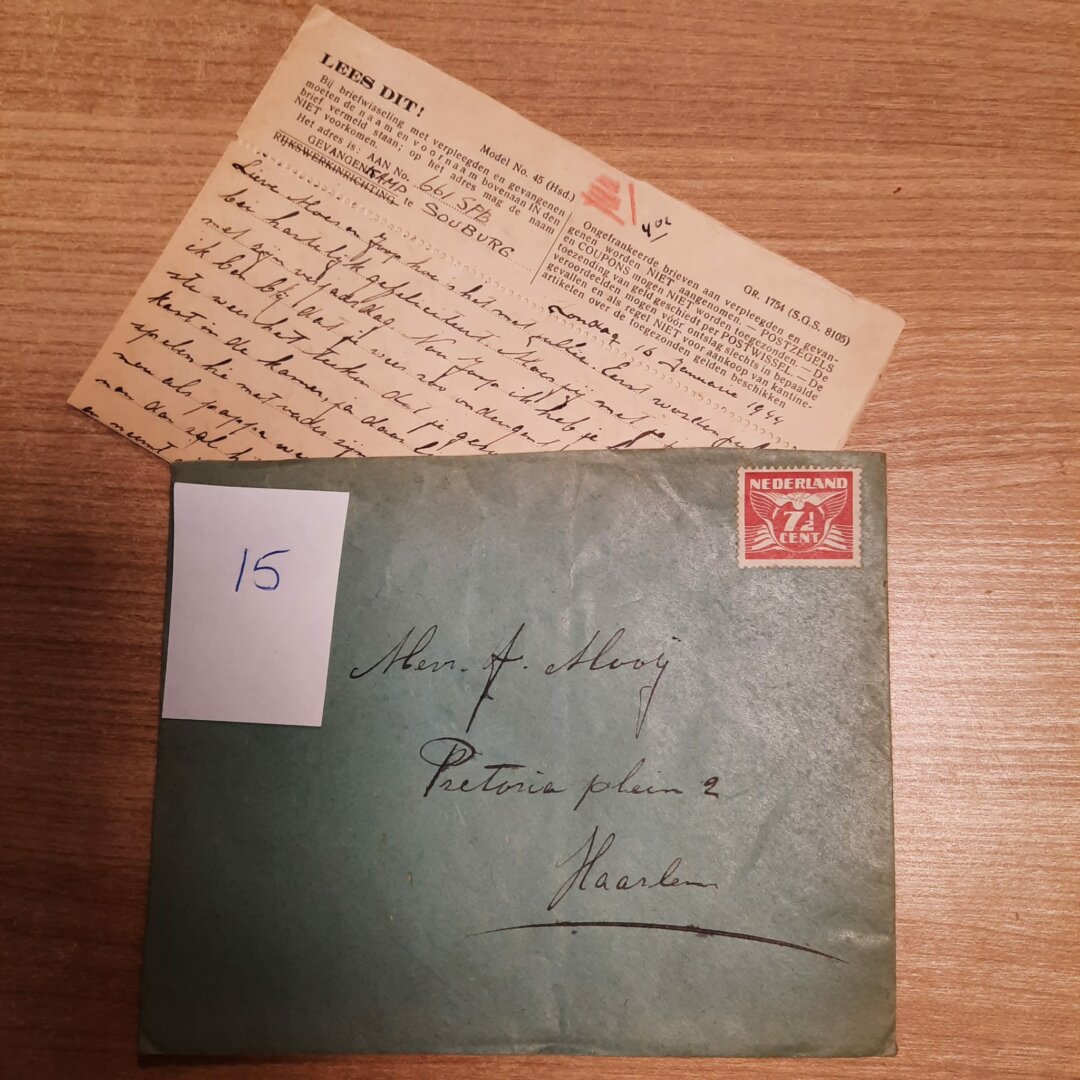 LEES DIT!
Bij briefwisseling met verpleegden en gevangenen
moeten de naam en voornaam bovenaan IN den
brief vermeld staan; op het adres mag de naam
NIET voorkomen.
Model No. 45 (Hsd.)
Het adres is: AAN No. 661 SPB
GEVANGENKAMP
RIJKSWERKINRICHTING te SOUBURG
402
GR. 1754 (S.G.S. 8105)
Ongefrankeerde brieven aan verpleegden en gevan-
genen worden NIET aangenomen. — POSTZEGELS
en COUPONS mogen NIET worden toegezonden. — De
toezending van geld geschiedt per POSTWISSEL. — De
veroordeelden mogen vóór ontslag slechts in bepaalde
gevallen en als regel NIET voor aankoop van kantine-
artikelen over de toegezonden gelden beschikken
Zondag 16 Januarie 1944
Lieve Moes en Joop hoe is het met jullie. Eerst worden
bei hartelijk gefeliciteert. Moes jij met
met zijn verjaardag. Nou Joop ik heb je
ik ben blij dat je weer zoo
ste weer het teeken dat je
kent in de kamer ga daar
spelen hie met vader zijn
men als pappa
aan dan zal hij
en neemt
NEDERLAND
7½
CENT
15
Mevr. A. Mooij
Pretoria plein 2
Haarlem